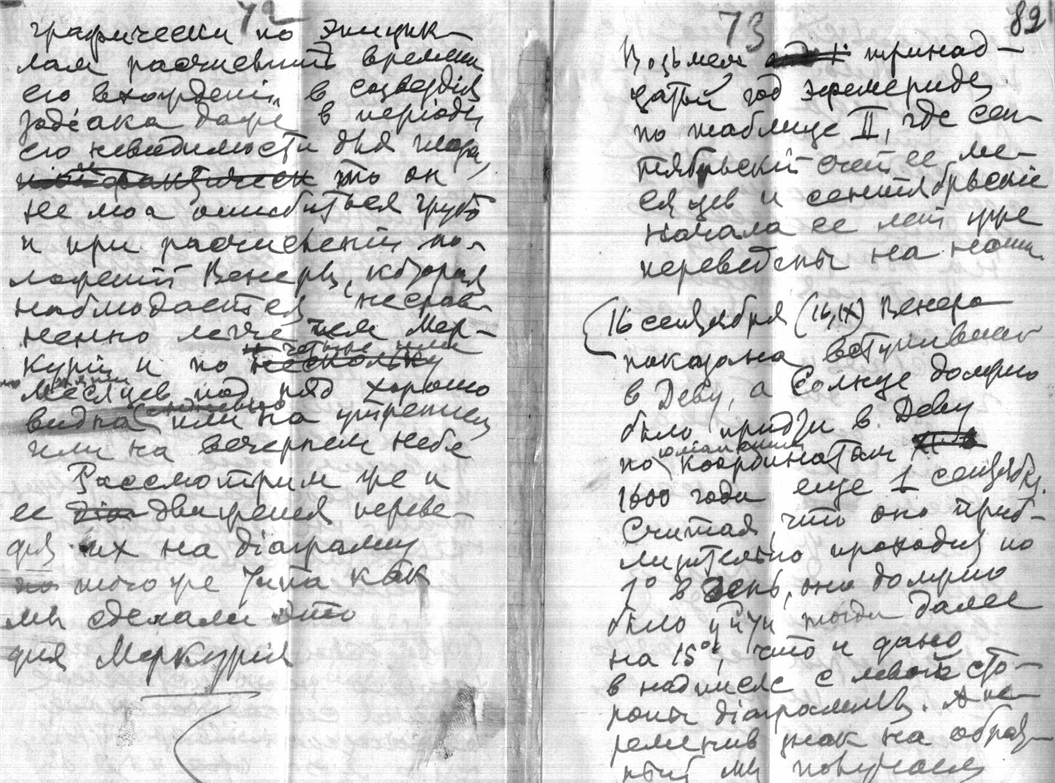 72
графически по эпицик-
лам расчислить времена
его вхождений в созвездiя
зодiака даже в перiоды
его невидимости для глаза,
то он
не мог ошибиться грубо
и при расчислениi по-
ложенiй Венеры, которая
наблюдается несрав-
ненно легче чем Мер-
курiй и по четыре или
месяцев под ряд хорошо
видна или на утреннем
или на вечернем небе
Рассмотрим же и
ее движения переве-
дя их на дiаграмму
того же типа как
мы сделали это
для Меркурiя
73
82
Возьмем тринад-
цатый год эфемериды
по таблице II, где сен-
тябрьскiй счет ее ме-
сяцев и сентябрьскiе
начала ее лет уже
переведены на наши.
16 сентября (16,IX) Венера
показана вступившей
в Деву, а Солнце должно
было придти в Деву
по координатам
1600 года еще 1 сентября.
Считая, что оно приб-
лизительно проходит по
1° в день, оно должно
было уйти тогда далее
на 15°, что и дано
в надписях с левой сто-
роны дiаграммы. А пе-
ременив знак на обрат-
ный мы получаем